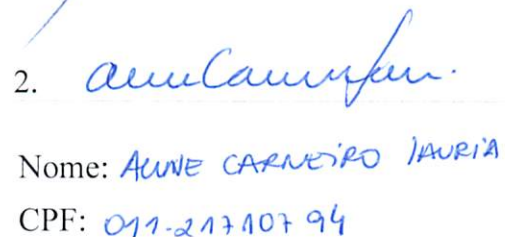 2.
Nome: ALINE CARNEIRO LAURIA
CPF: 011-217107 94